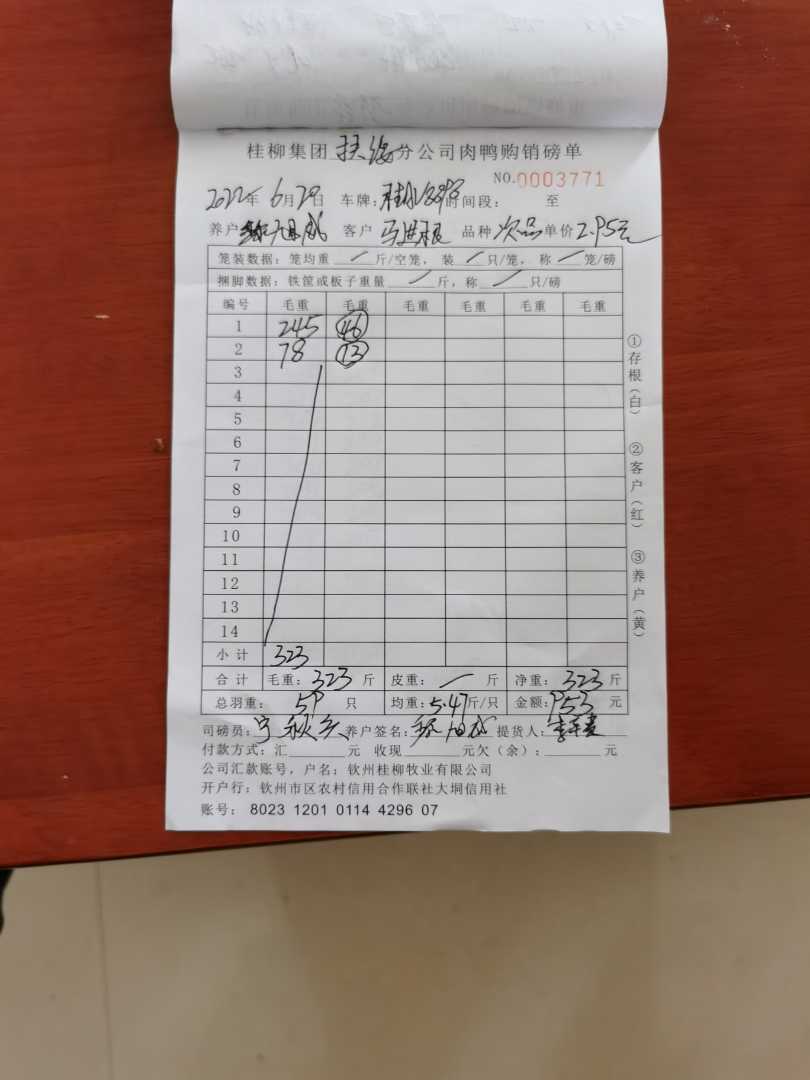 桂柳集团 扶绥 分公司肉鸭购销磅单
NO.0003771
2022年 6月29日 车牌: 时间段: 至
养户 客户 马进根 品种 次品 单价 2.95元
笼装数据: 笼均重 / 斤/空笼, 装 / 只/笼, 称 / 笼/磅
捆脚数据: 铁筐或板子重量 / 斤, 称 / 只/磅
编号 毛重 毛重 毛重 毛重 毛重 毛重
1 245 46
2 78 13
3
4
5
6
7
8
9
10
11
12
13
14
小计 323
合计 毛重: 323 斤 皮重: / 斤 净重: 323 斤
总羽重: 59 只 均重: 5.47斤/只 金额: 953 元
司磅员: 养户签名: 提货人:
付款方式: 汇 元 收现 元欠(余): 元
公司汇款账号, 户名: 钦州桂柳牧业有限公司
开户行: 钦州市区农村信用合作联社大垌信用社
账号: 8023 1201 0114 4296 07
①存根(白)
②客户(红)
③养户(黄)